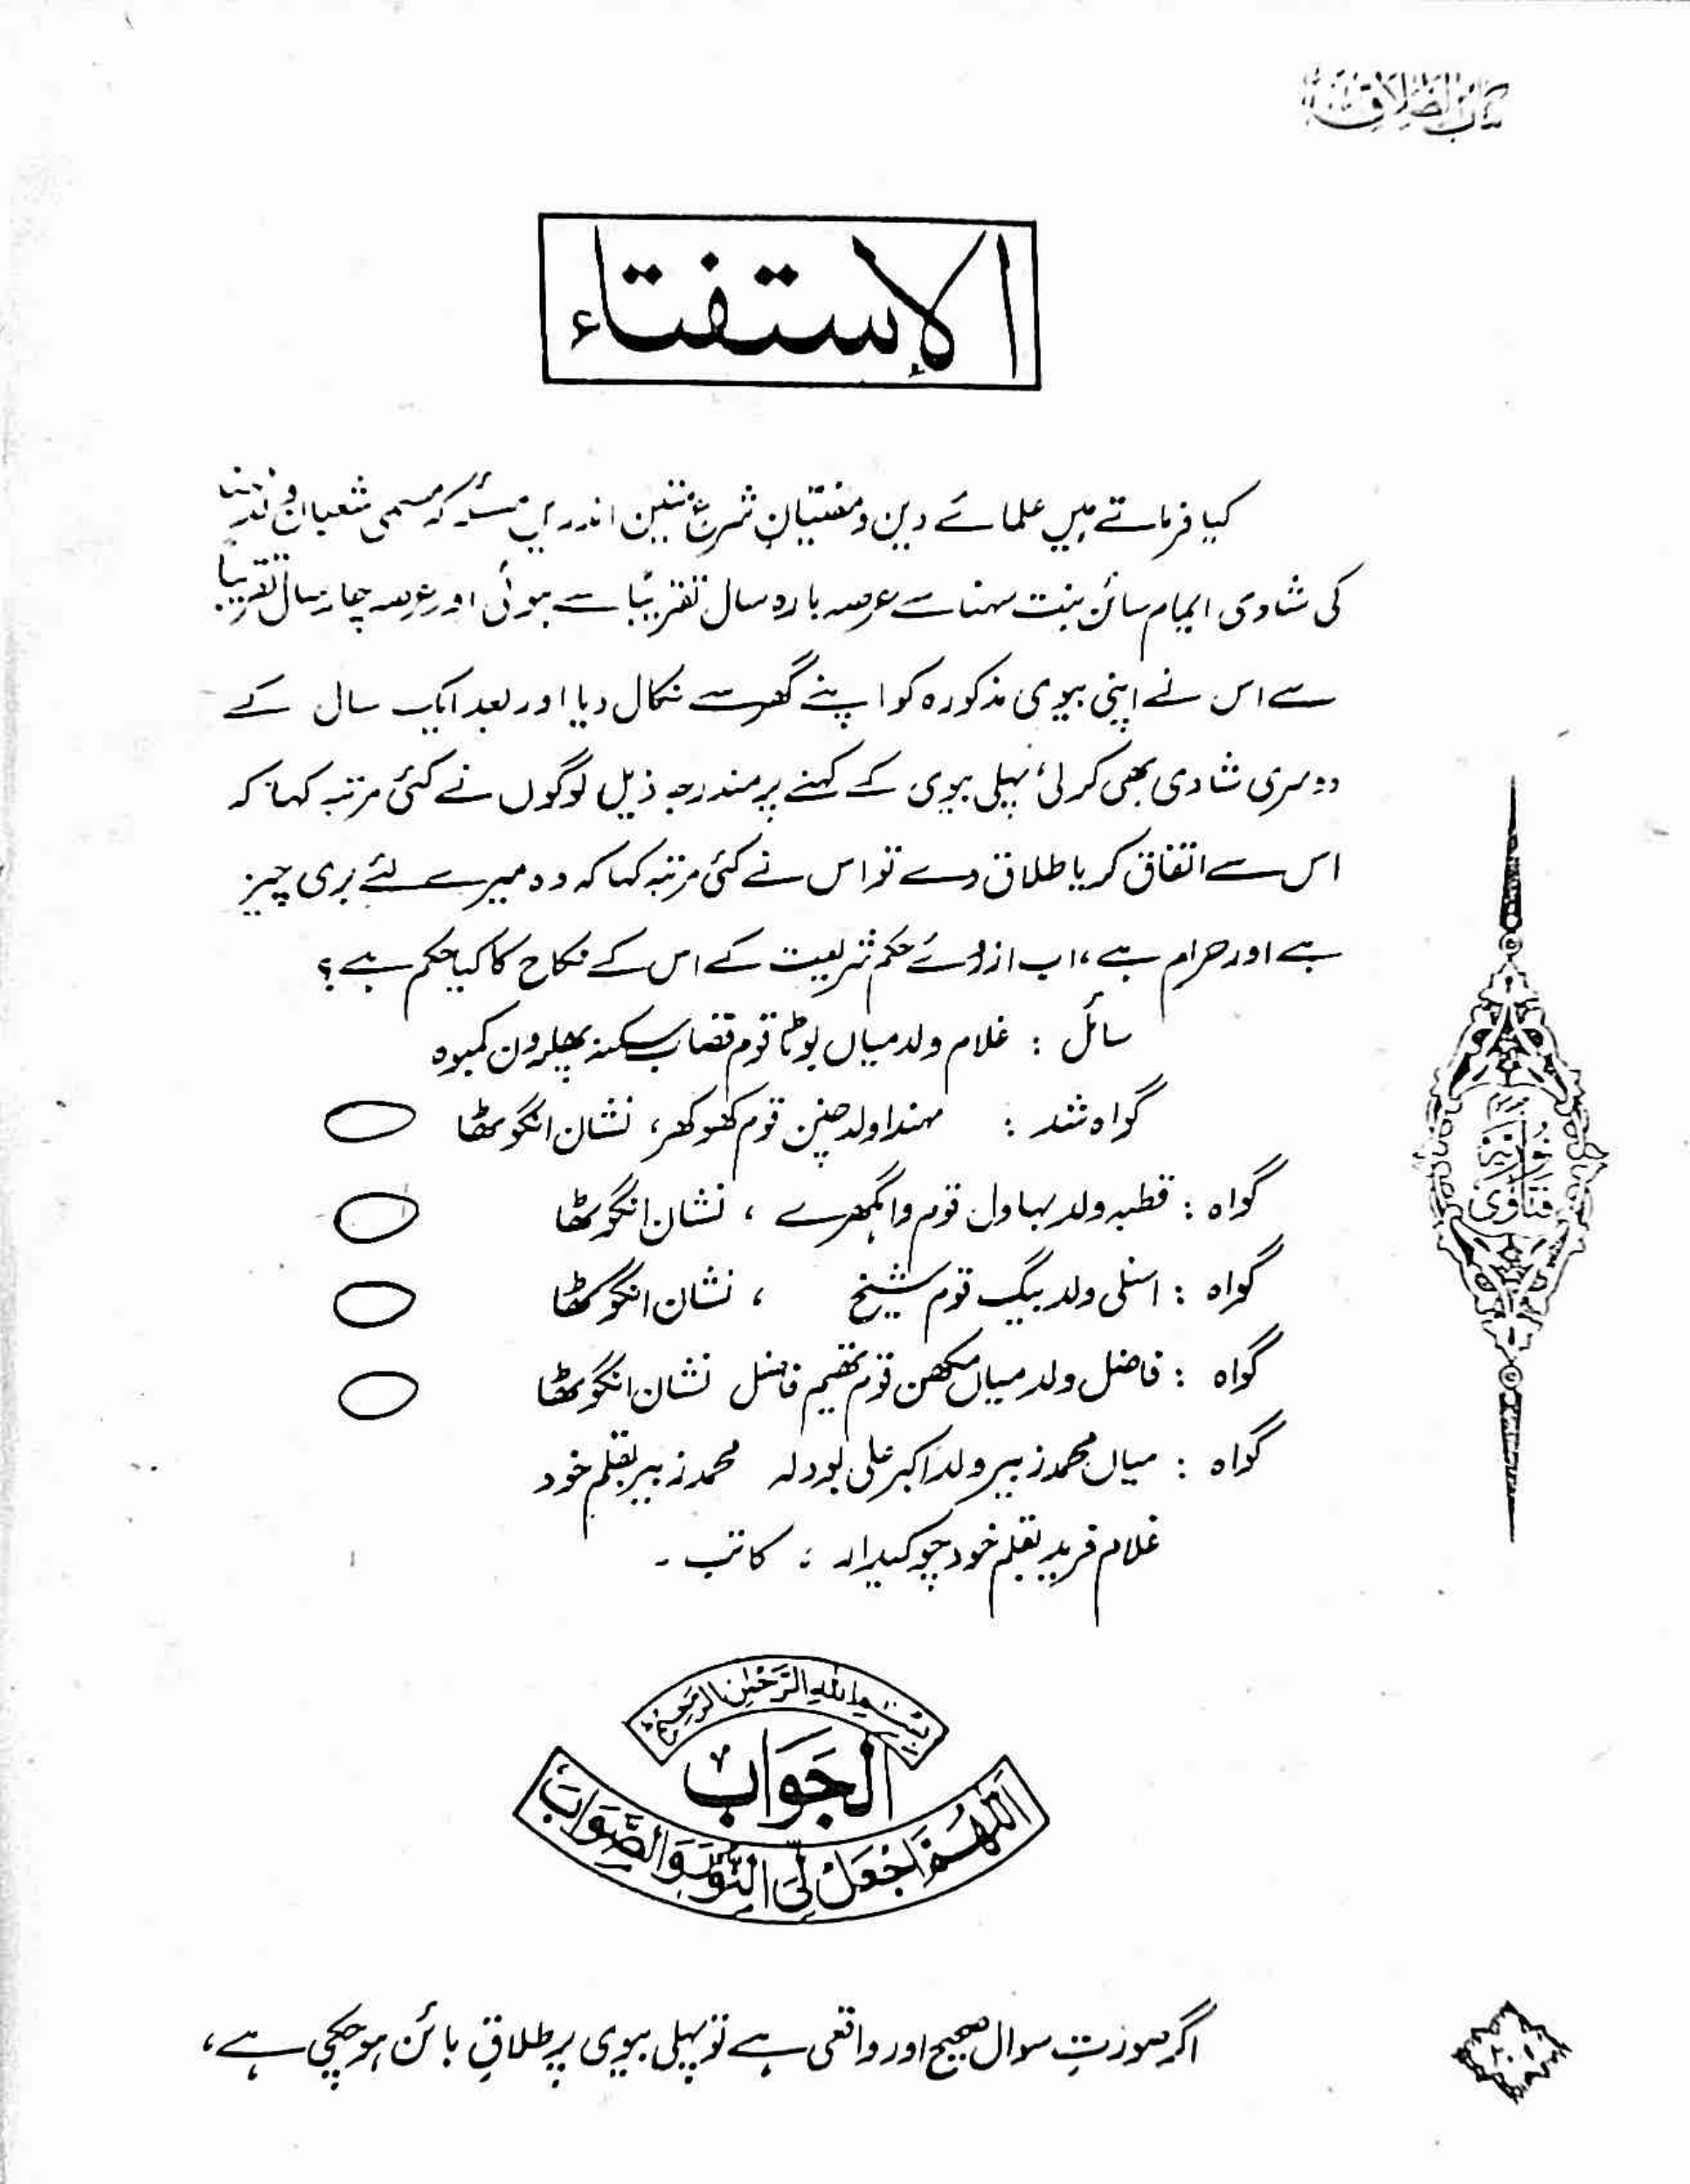 کتاب الطلاق
الإستفتاء
کیا فرماتے ہیں علمائے دین و مفتیان شرع متین اندریں مسئلہ کہ مسمی شعبان
کی شادی سائن بنت سہنا سے عرصہ بارہ سال تقریبًا سے ہوئی اور عرصہ چار سال تقریبًا
سے اس نے اپنی بیوی مذکورہ کو اپنے گھر سے نکال دیا اور بعد ایک سال کے
دوسری شادی بھی کر لی، پہلی بیوی کے کہنے پر مندرجہ ذیل لوگوں نے کئی مرتبہ کہا کہ
اس سے اتفاق کر یا طلاق دے تو اس نے کئی مرتبہ کہا کہ وہ میرے لئے بری چیز
ہے اور حرام ہے، اب ازروئے حکم شریعت کے اس کے نکاح کا کیا حکم ہے؟
سائل : غلام ولد میاں بوٹا قوم قصاب سکنہ کمبوہ
گواہ شد : مہندا ولد قوم کھوکھر، نشان انگوٹھا
گواہ : قطبہ ولد بہاول قوم واگھرے ، نشان انگوٹھا
گواہ : ولد بیگ قوم شیخ ، نشان انگوٹھا
گواہ : فاضل ولد میاں مکھن قوم فاضل نشان انگوٹھا
گواہ : میاں محمد زبیر ولد اکبر علی بودلہ محمد زبیر بقلم خود
غلام فرید بقلم خود چوکیدار ؛ کاتب ۔
فتاوی نوریہ
بسم الله الرحمن الرحيم
الجَوَابُ
اللّٰهُمَّ اجْعَلْ لِي النُّوْرَ وَالصَّوَابَ
اگر صورتِ سوال صحیح اور واقعی ہے تو پہلی بیوی پر طلاقِ بائن ہو چکی ہے،